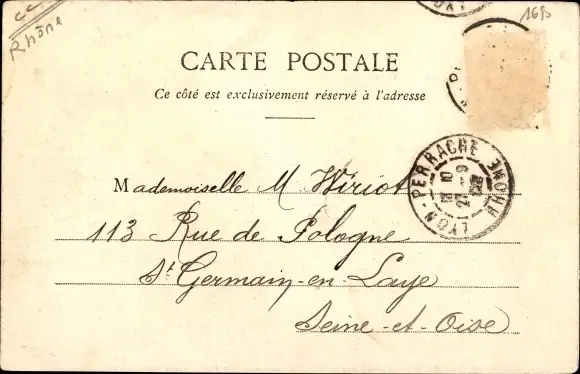 Rhône
1693
CARTE POSTALE
Ce côté est exclusivement réservé à l'adresse
LYON-PERRACHE RHONE
Mademoiselle M. Wiriot
113 Rue de Pologne
St Germain-en-Laye
Seine-et-Oise